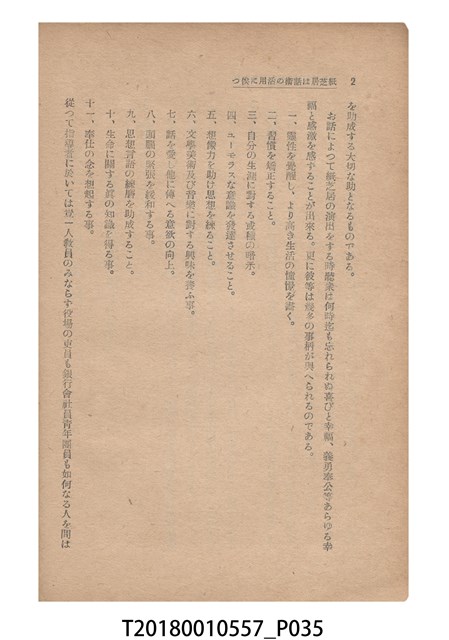 2　紙芝居は話術の活用に俟つ
を助成する大切な助となるものである。
お話によつて紙芝居の演出をする時聽衆は何時迄も忘れられぬ喜びと幸願、義勇奉公等あらゆる幸
福と感激を感ずることが出來る。更に彼等は幾多の事柄が與へられるのである。
一、靈性を覺醒し、より高き生活の憧憬を書く。
二、習慣を矯正すること。
三、自分の生涯に對する或種の暗示。
四、ユーモラスな意識を發達させること。
五、想像力を助け思想を練ること。
六、文學美術及び音樂に對する興味を養ふ事。
七、話を愛し他に傳へる意欲の向上。
八、頭腦の緊張を緩和する事。
九、思想言語の練磨を助成すること。
十、生命に關する眞の知識を得る事。
十一、奉仕の念を想起する事。
從つて指導者に於いては獨一人敎員のみならず役場の吏員も銀行會社員靑年團員も如何なる人を問は
T20180010557_P035